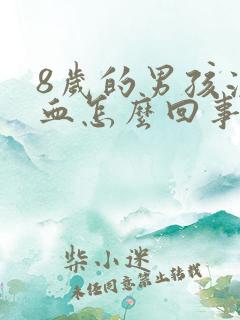 8歲的男孩
血怎麼回事
柴小迷
未经同意禁止转载